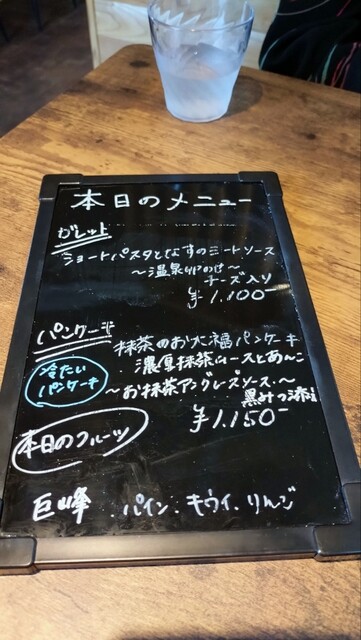 本日のメニュー
ガレット
ショートパスタとなすのミートソース
～温泉卵のせ～
チーズ入り
¥1.100-
パンケーキ
冷たい
パンケーキ
抹茶のお大福パンケーキ
濃厚抹茶ムースとあんこ
～お抹茶アングレーズソース～
黒みつ添え
¥1.150-
本日のフルーツ
巨峰 パイン. キウイ. りんご